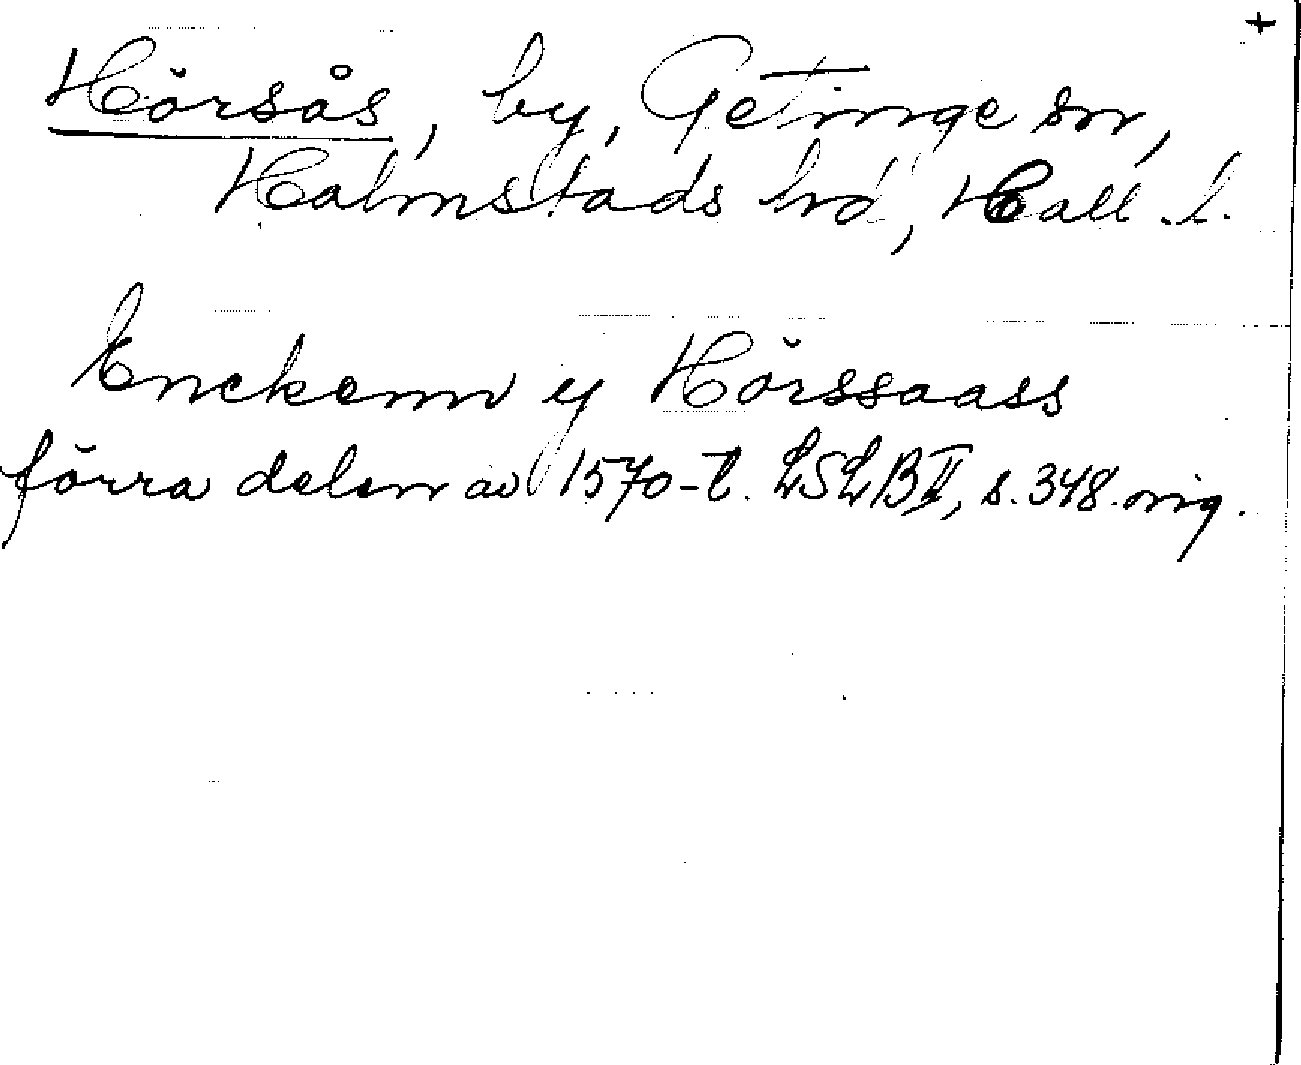 +
Hörsås, by, Getinge sn,
Halmstads hd, Hall. l.
Enckenn y Hörssaass
förra delen av 1570-t. LSLB II, s. 348. orig.